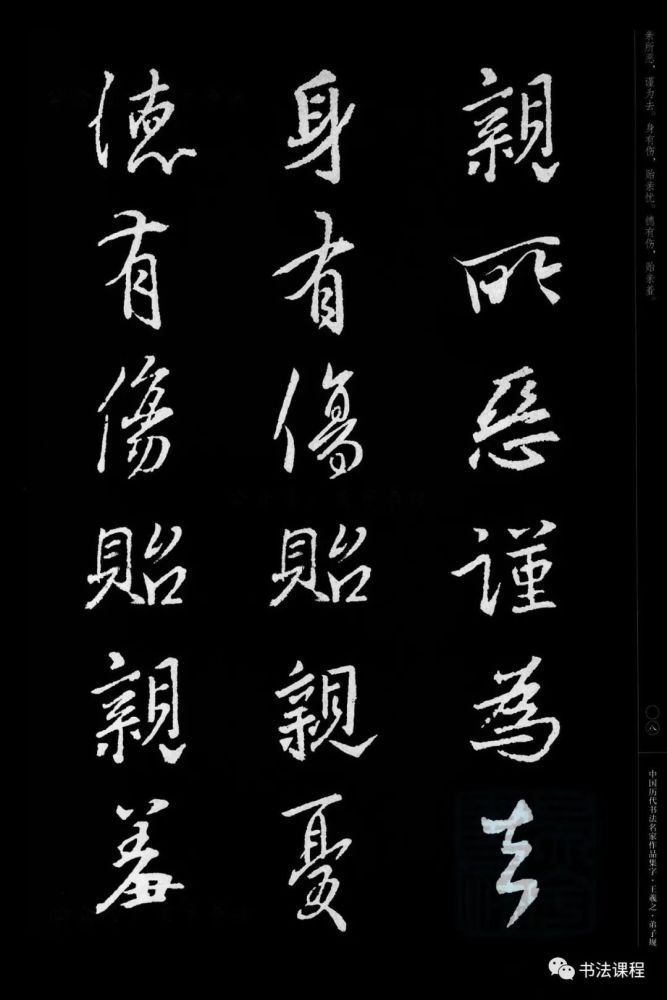 親所惡謹為去
身有傷貽親憂
德有傷貽親羞
亲所恶，谨为去。身有伤，贻亲忧。德有伤，贻亲羞。
〇八
中国历代书法名家作品集字·王羲之·弟子规
书法课程